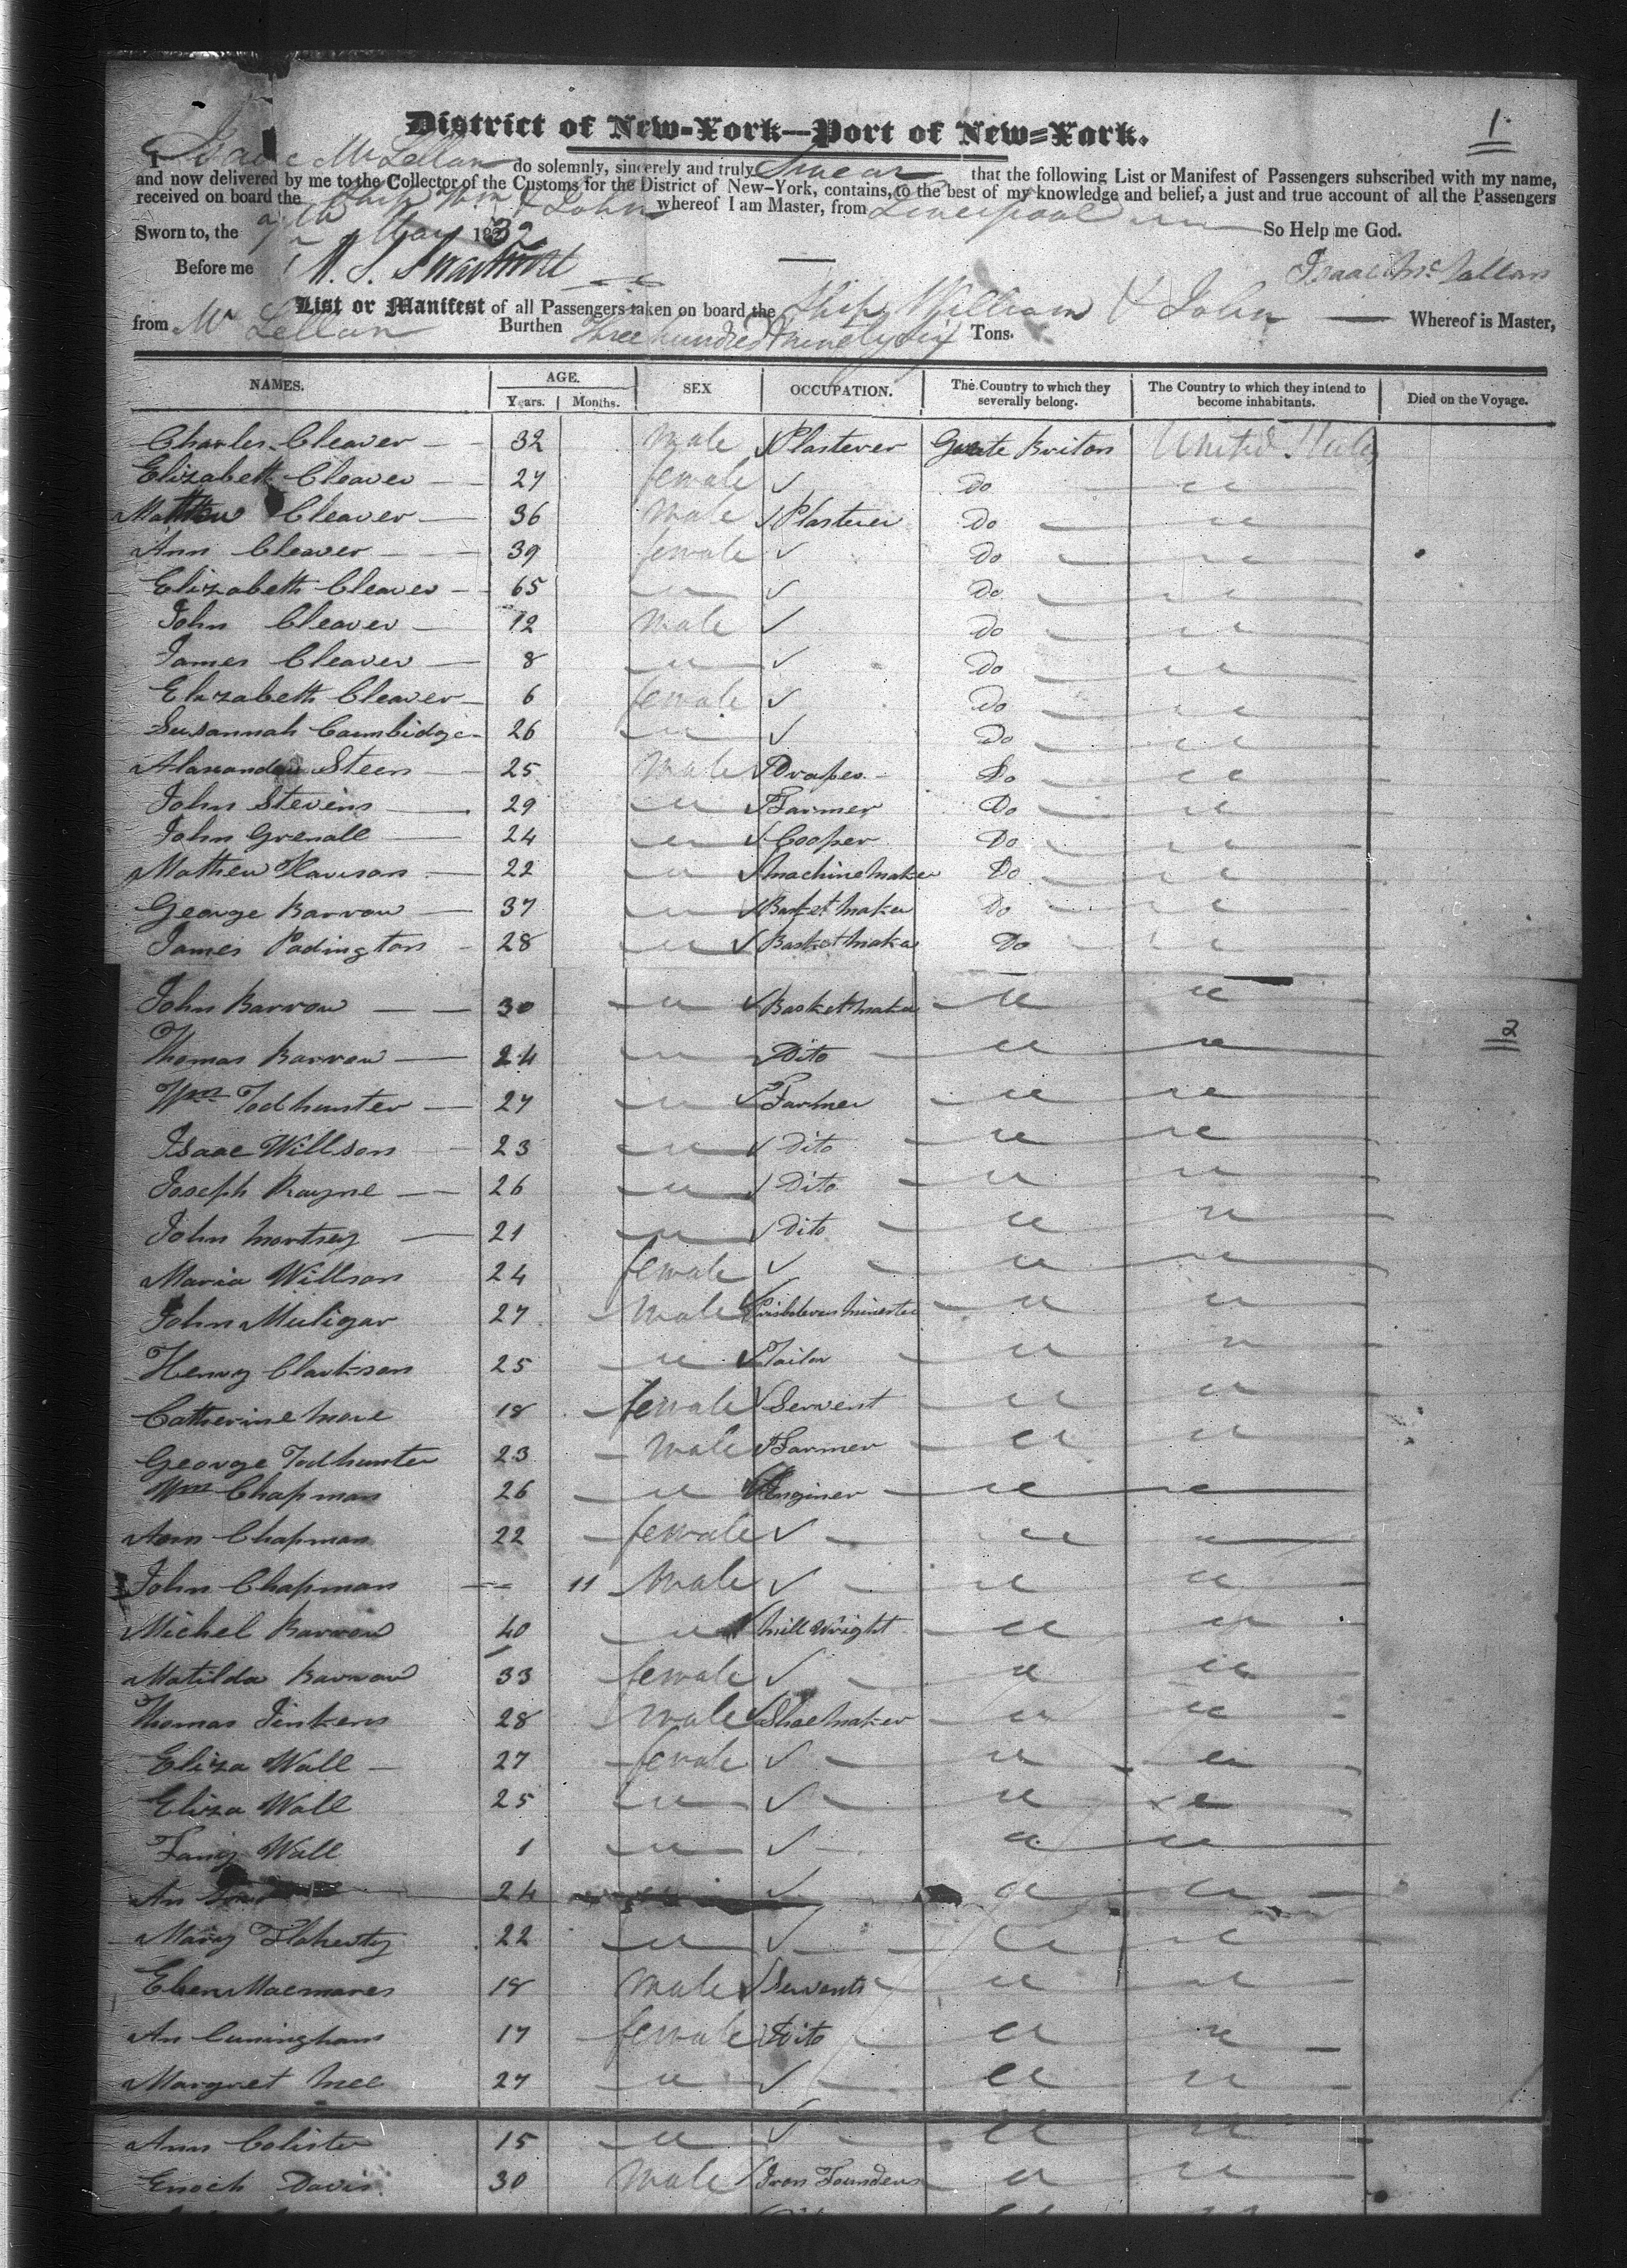 1
District of New-York—Port of New=York.
I Isaac McLellan do solemnly, sincerely and truly Swear that the following List or Manifest of Passengers subscribed with my name,
and now delivered by me to the Collector of the Customs for the District of New-York, contains, to the best of my knowledge and belief, a just and true account of all the Passengers
received on board the Ship Wm & John whereof I am Master, from Liverpool
Sworn to, the May 1832 So Help me God.
Before me Swartwout Isaac McLellan
List or Manifest of all Passengers taken on board the Ship William & John Whereof is Master,
from McLellan Burthen Three hundred & ninety six Tons.
NAMES. AGE. SEX OCCUPATION. The Country to which they severally belong. The Country to which they intend to become inhabitants. Died on the Voyage.
Years. Months.
Charles Cleaver 32 male Plasterer Greate Briton United States
Elizabeth Cleaver 27 female Do "
Matthew Cleaver 36 male Plasterer Do "
Ann Cleaver 39 female Do "
Elizabeth Cleaver 65 " Do "
John Cleaver 12 male Do "
James Cleaver 8 " Do "
Elizabeth Cleaver 6 female Do "
Susannah Cambidge 26 " Do "
Alaxander Steen 25 male Draper Do "
John Stevens 29 " Farmer Do "
John Grenall 24 " Cooper Do "
Mathew 22 " Machine Maker Do "
George Barrow 37 " Basket Maker Do "
James Padington 28 " Basket Maker Do "
John Barrow 30 " Basket Maker " "
2
Thomas Barrow 24 " Dito " "
Wm Todhunter 27 " Farmer " "
Isaac Willson 23 " Dito " "
Joseph Rayne 26 " Dito " "
John 21 " Dito " "
Maria Willson 24 female " "
John Muligar 27 male " "
Henry Clarkson 25 " Tailor " "
Catherine More 18 female Servent " "
George Todhunter 23 male Farmer " "
Wm Chapman 26 " Enginer " "
Ann Chapman 22 female " "
John Chapman 11 male " "
Michel Barrow 40 " Mill Wright " "
Matilda Barrow 33 female " "
Thomas Jinkens 28 male Shoe Maker " "
Eliza Wall 27 female " "
Eliza Wall 25 " " "
Faniy Wall 1 " " "
An 24 " "
Mary Flaherty 22 " " "
Eben Macmanes 18 male Servants " "
An Cuningham 17 female Dito " "
Margret Mee 27 " " "
Ann Colister 15 " " "
Enoch Davis 30 male Iron Founders " "